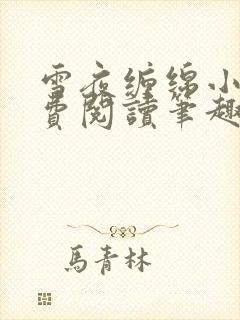 雪夜缠绵小
費閱讀筆趣
馬青林